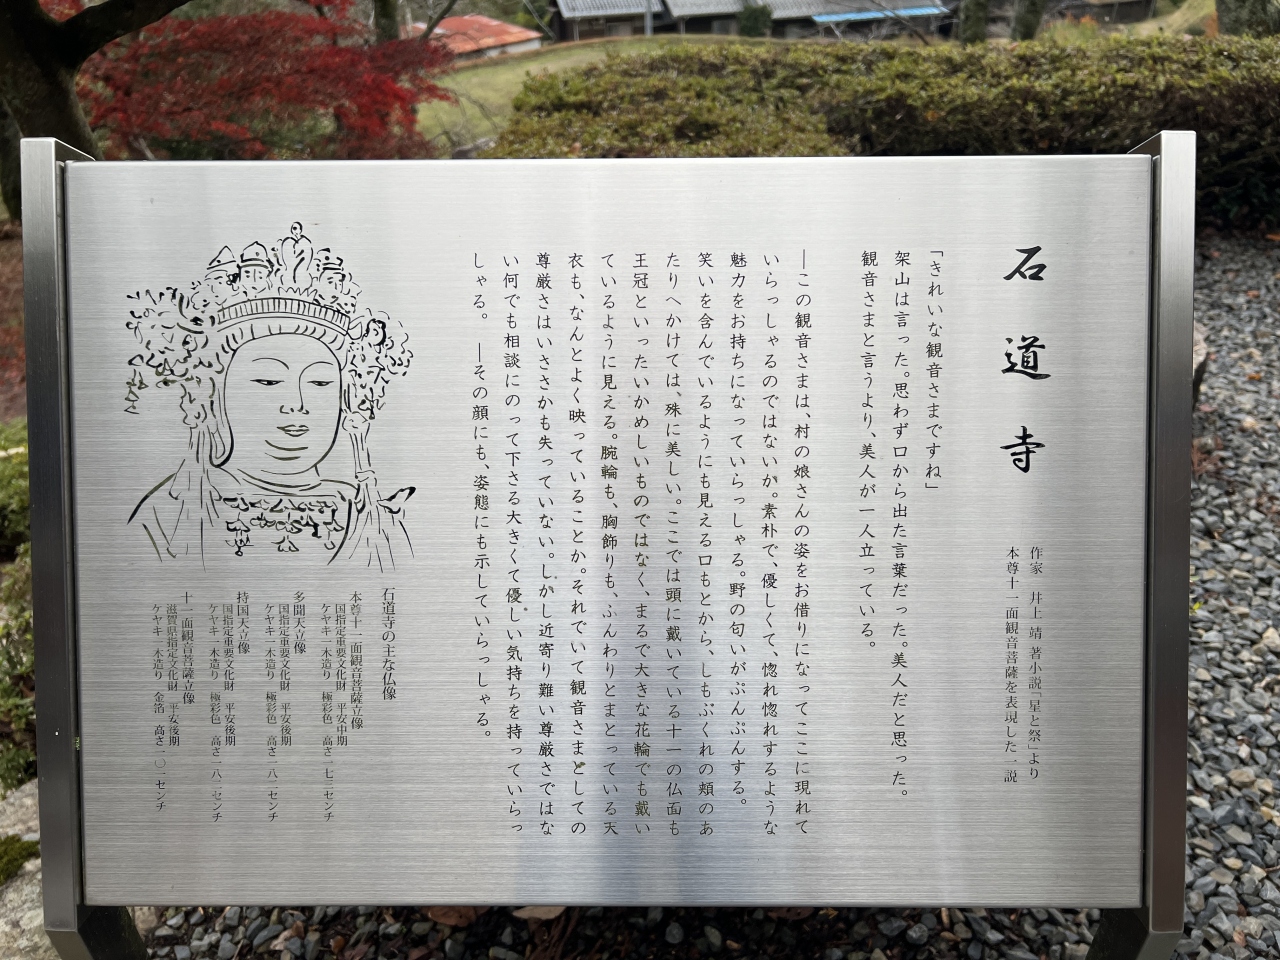 石道寺
作家 井上 靖 著小説「星と祭」より
本尊十一面観音菩薩を表現した一説
「きれいな観音さまですね」
架山は言った。思わず口から出た言葉だった。美人だと思った。
観音さまと言うより、美人が一人立っている。
―この観音さまは、村の娘さんの姿をお借りになってここに現れて
いらっしゃるのではないか。素朴で、優しくて、惚れ惚れするような
魅力をお持ちになっていらっしゃる。野の匂いがぷんぷんする。
笑いを含んでいるようにも見える口もとから、しもぶくれの頬のあ
たりへかけては、殊に美しい。ここでは頭に戴いている十一の仏面も
王冠といったいかめしいものではなく、まるで大きな花輪でも戴い
ているように見える。腕輪も、胸飾りも、ふんわりとまとっている天
衣も、なんとよく映っていることか。それでいて観音さまとしての
尊厳さはいささかも失っていない。しかし近寄り難い尊厳さではな
い何でも相談にのって下さる大きくて優しい気持ちを持っていらっ
しゃる。 ―その顔にも、姿態にも示していらっしゃる。
石道寺の主な仏像
本尊十一面観音菩薩立像
国指定重要文化財 平安中期
ケヤキ一木造り 極彩色 高さ一七三センチ
多聞天立像
国指定重要文化財 平安後期
ケヤキ一木造り 極彩色 高さ一八二センチ
持国天立像
国指定重要文化財 平安後期
ケヤキ一木造り 極彩色 高さ一八二センチ
十一面観音菩薩立像
滋賀県指定文化財 平安後期
ケヤキ一木造り 金箔 高さ一〇一センチ